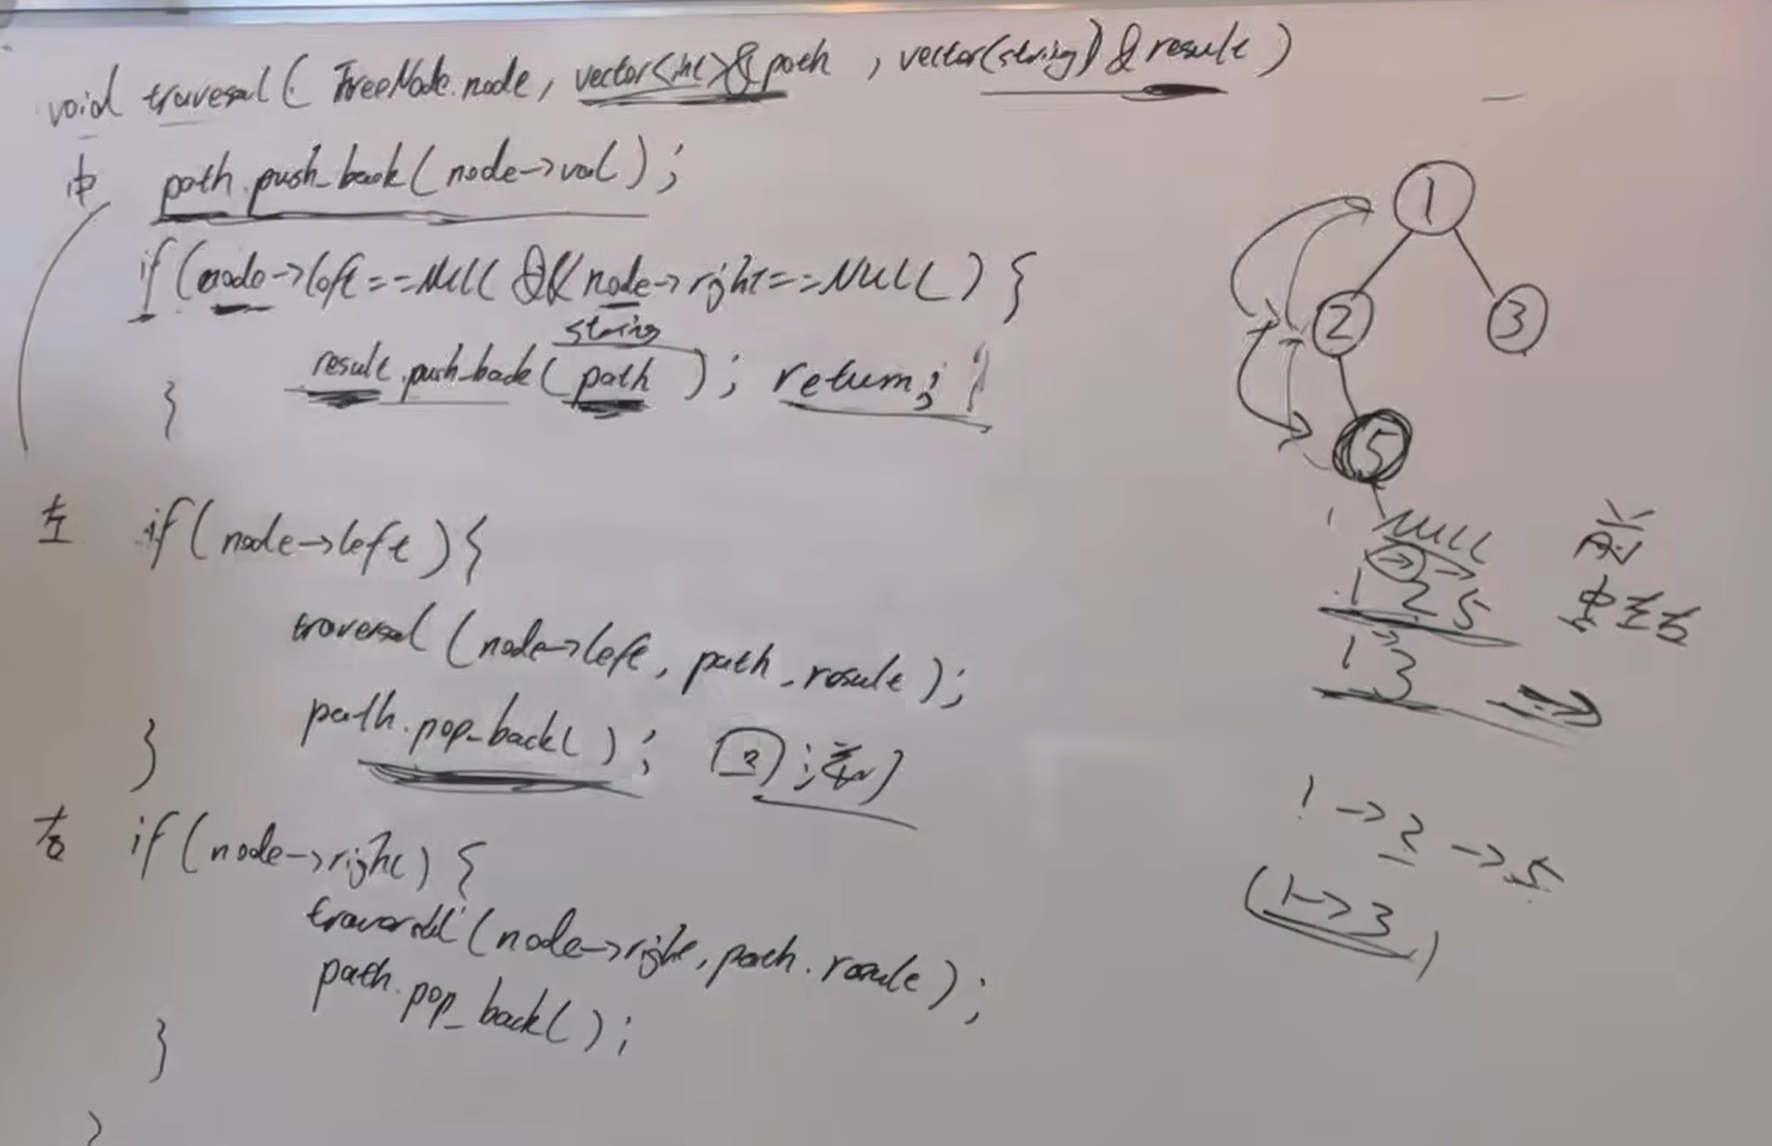 void traversal( TreeNode.node, vector<int>& path , vector(string) & result )
中 path.push_back(node->val);
if(node->left==NULL && node->right==NULL) {
string
result.push_back(path); return; }
}
左 if(node->left){
traversal(node->left, path, result);
path.pop_back();
}
右 if(node->right) {
traversal(node->right, path. result);
path.pop_back();
}
}
1
2 3
5
NULL
1 2 5
前
中左右
1 3
1->2->5
(1->3)